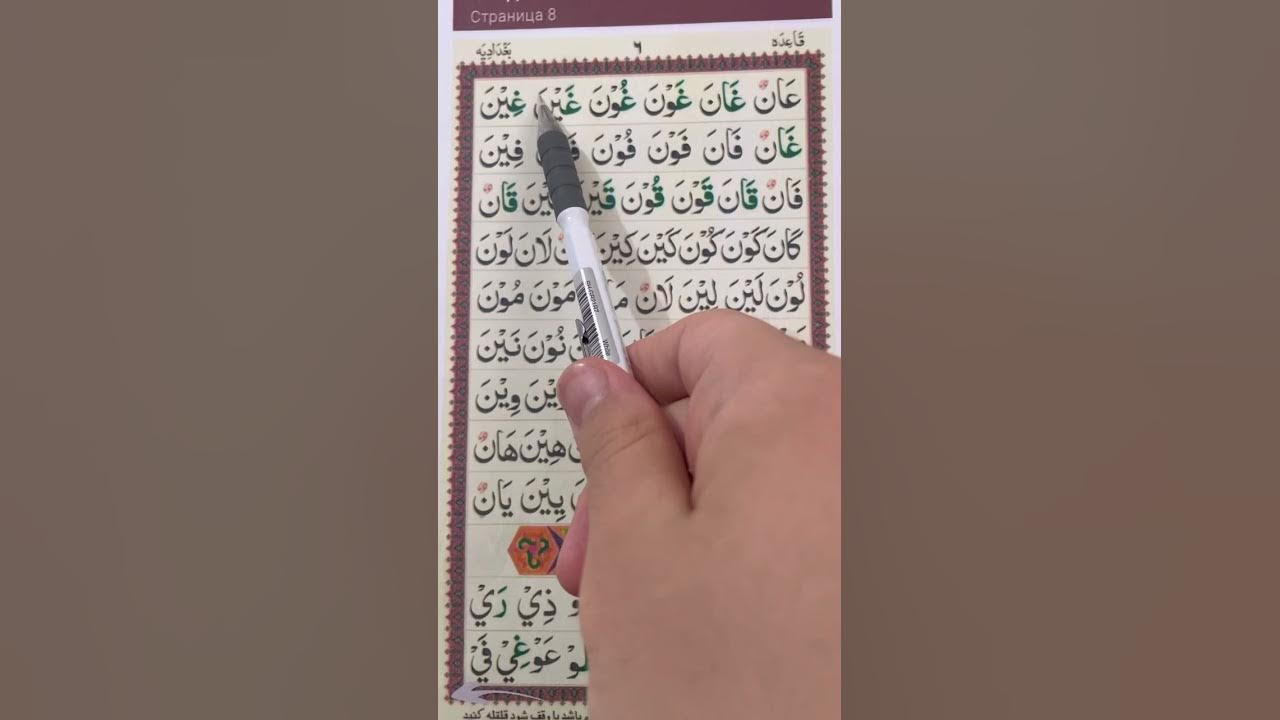 Страница 8
قَاعِدَه ٦ بَغْدَادِيَه
عَانْ غَانَ غَوْنَ غُوْنَ غَيْنَ غِيْنَ
غَانْ فَانَ فَوْنَ فُوْنَ فِيْنَ
فَانْ قَانَ قَوْنَ قُوْنَ قَيْنَ قَانْ
كَانَ كَوْنَ كُوْنَ كَيْنَ كِيْنَ لَانَ لَوْنَ
لُوْنَ لَيْنَ لِيْنَ لَانْ مَوْنَ مُوْنَ
نُوْنَ نَيْنَ
وِيْنَ
هِيْنَ هَانْ
يِيْنَ يَانْ
ذِيْ رَيْ
عَوْ غِيْ فَيْ
باشد یا وقف شود قلقله کنید